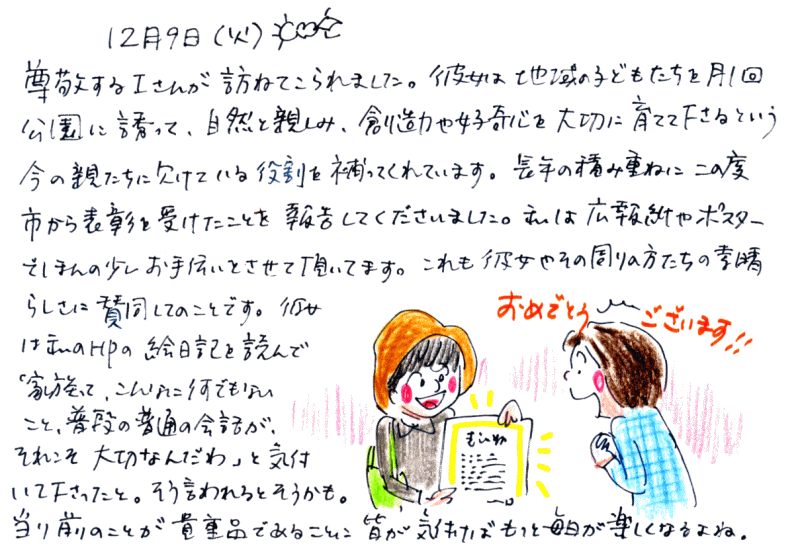 12月9日(火)
尊敬するIさんが訪ねてこられました。彼女は地域の子どもたちを月1回
公園に誘って、自然と親しみ、創造力や好奇心を大切に育てて下さるという
今の親たちに欠けている役割を補ってくれています。長年の積み重ねにこの度
市から表彰を受けたことを報告してくださいました。私は広報紙やポスター
でほんの少しお手伝いとさせて頂いてます。これも彼女やその周りの方たちの素晴
らしさに賛同してのことです。彼女
は私のHPの絵日記を読んで
「家族って、こんなに何でもない
こと、普段の普通の会話が、
それこそ大切なんだわ」と気付
いて下さったと。そう言われるとそうかも。
当り前のことが貴重品であることに皆が気付けばもっと毎日が楽しくなるよね。
おめでとう
ございます!!